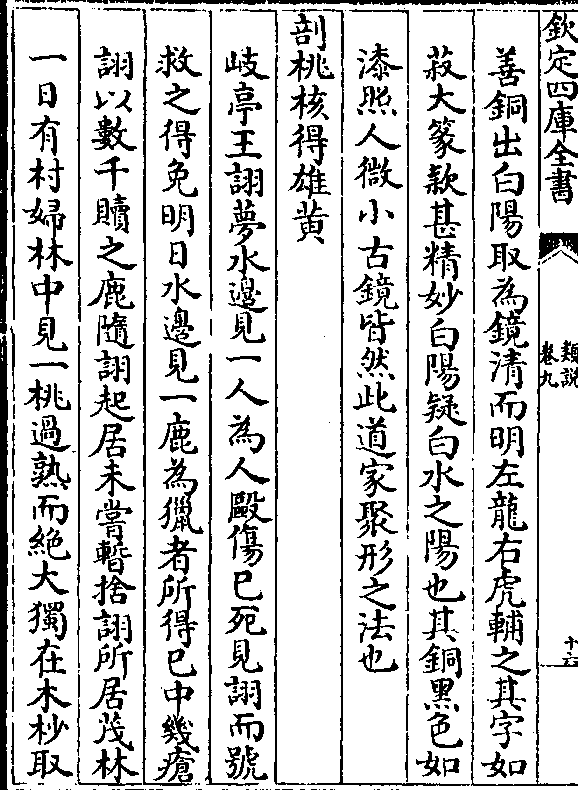 欽定四庫全書
類說
卷九
十六
善銅出白陽取為鏡清而明左龍右虎輔之其字如
菽大篆款甚精妙白陽疑白水之陽也其銅黑色如
漆照人微小古鏡皆然此道家聚形之法也
剖桃核得雄黄
岐亭王詡夢水邊見一人為人毆傷已死見詡而號
救之得免明日水邊見一鹿為獵者所得已中幾瘡
詡以數千贖之鹿隨詡起居未嘗暫捨詡所居茂林
一日有村婦林中見一桃過熟而絶大獨在木杪取